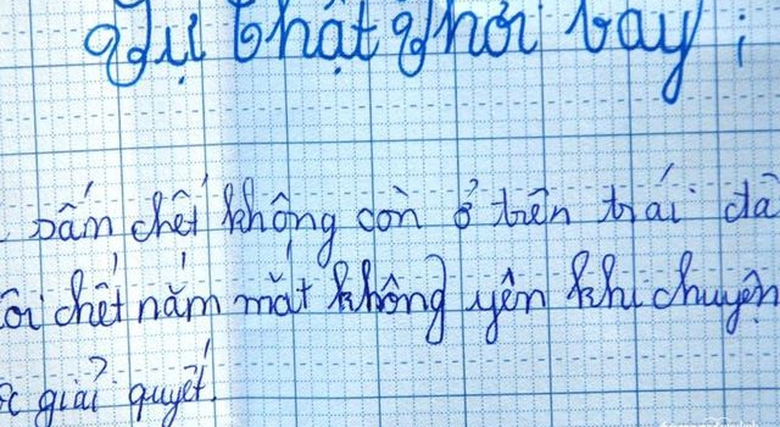 Sự thật phơi bay :
chết không còn ở trên trái
chết nắm mắt không yên khi chuyện
giải quyết.